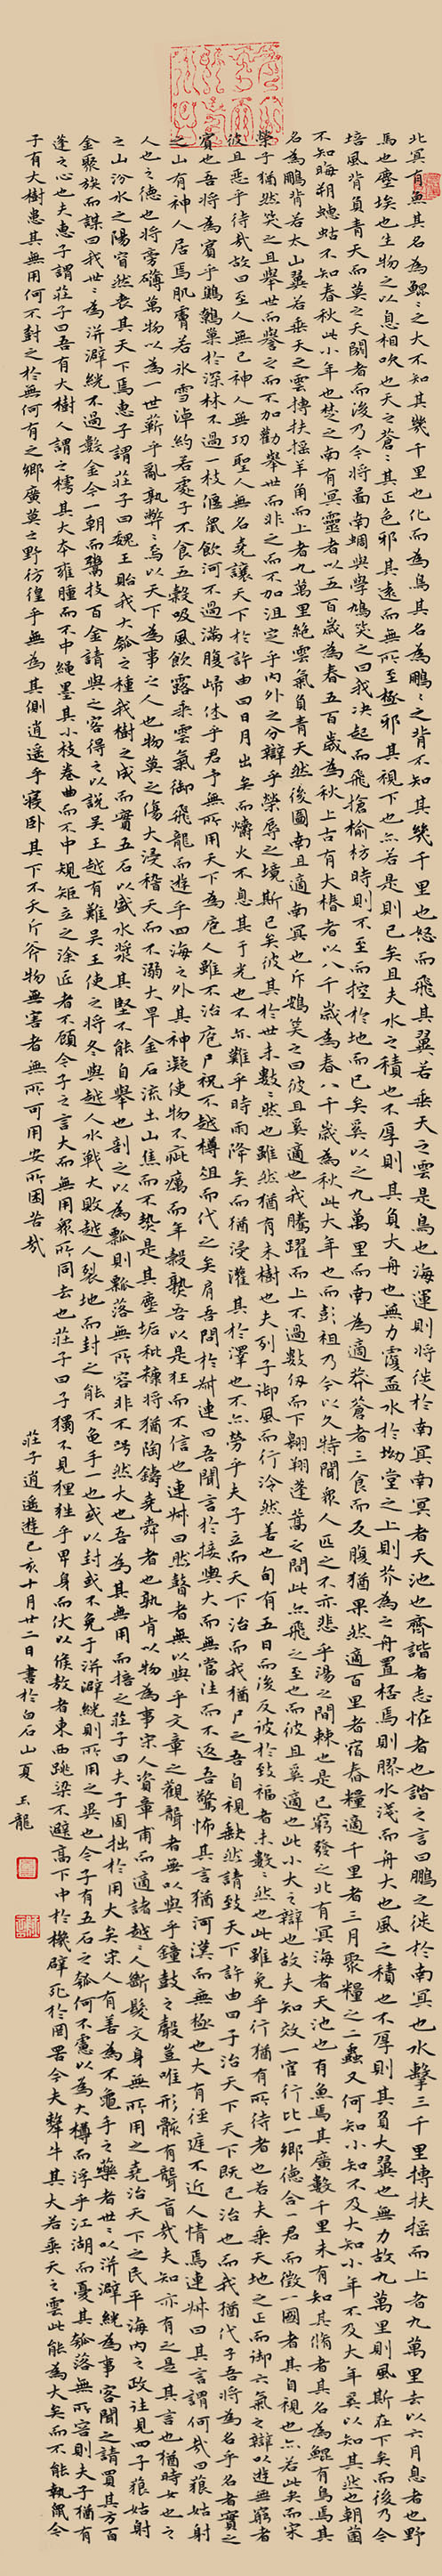 北冥有魚其名為鯤〻之大不知其幾千里也化而為鳥其名為鵬〻之背不知其幾千里也怒而飛其翼若垂天之雲是鳥也海運則將徙於南冥南冥者天池也齊諧者志怪者也諧之言曰鵬之徙於南冥也水擊三千里摶扶搖而上者九萬里去以六月息者也野
馬也塵埃也生物之以息相吹也天之蒼〻其正色邪其遠而無所至極邪其視下也亦若是則已矣且夫水之積也不厚則其負大舟也無力覆盃水於坳堂之上則芥為之舟置杯焉則膠水淺而舟大也風之積也不厚則其負大翼也無力故九萬里則風斯在下矣而後乃今
培風背負青天而莫之夭閼者而後乃今將圖南蜩與學鳩笑之曰我決起而飛搶榆枋時則不至而控於地而已矣奚以之九萬里而南為適莽蒼者三食而反腹猶果然適百里者宿舂糧適千里者三月聚糧之二蟲又何知小知不及大知小年不及大年奚以知其然也朝菌
不知晦朔蟪蛄不知春秋此小年也楚之南有冥靈者以五百歲為春五百歲為秋上古有大椿者以八千歲為春八千歲為秋此大年也而彭祖乃今以久特聞衆人匹之不亦悲乎湯之問棘也是已窮發之北有冥海者天池也有魚焉其廣數千里未有知其脩者其名為鯤有鳥焉其
名為鵬背若太山翼若垂天之雲摶扶搖羊角而上者九萬里絕雲氣負青天然後圖南且適南冥也斥鴳笑之曰彼且奚適也我騰躍而上不過數仞而下翱翔蓬蒿之間此亦飛之至也而彼且奚適也此小大之辯也故夫知效一官行比一鄉德合一君而徵一國者其自視也亦若此矣而宋
榮子猶然笑之且舉世而譽之而不加勸舉世而非之而不加沮定乎內外之分辯乎榮辱之境斯已矣彼其於世未數〻然也雖然猶有未樹也夫列子御風而行泠然善也旬有五日而後反彼於致福者未數〻然也此雖免乎行猶有所待者也若夫乘天地之正而御六氣之辯以遊無窮者
彼且惡乎待哉故曰至人無己神人無功聖人無名堯讓天下於許由曰日月出矣而爝火不息其于光也不亦難乎時雨降矣而猶浸灌其於澤也不亦勞乎夫子立而天下治而我猶尸之吾自視缺然請致天下許由曰子治天下天下既已治也而我猶代子吾將為名乎名者實之
賓也吾將為賓乎鷦鷯巢於深林不過一枝偃鼠飲河不過滿腹歸休乎君予無所用天下為庖人雖不治庖尸祝不越樽俎而代之矣肩吾問於連叔曰吾聞言於接輿大而無當往而不返吾驚怖其言猶河漢而無極也大有徑庭不近人情焉連叔曰其言謂何哉曰藐姑射
之山有神人居焉肌膚若冰雪淖約若處子不食五穀吸風飲露乘雲氣御飛龍而遊乎四海之外其神凝使物不疵癘而年穀熟吾以是狂而不信也連叔曰然瞽者無以與乎文章之觀聾者無以與乎鐘鼓之聲豈唯形骸有聾盲哉夫知亦有之是其言也猶時女也之
人也之德也將旁礴萬物以為一世蘄乎亂孰弊〻焉以天下為事之人也物莫之傷大浸稽天而不溺大旱金石流土山焦而不熱是其塵垢粃糠將猶陶鑄堯舜者也孰肯以物為事宋人資章甫而適諸越〻人斷髮文身無所用之堯治天下之民平海內之政往見四子藐姑射
之山汾水之陽窅然喪其天下焉惠子謂莊子曰魏王貽我大瓠之種我樹之成而實五石以盛水漿其堅不能自舉也剖之以為瓢則瓠落無所容非不呺然大也吾為其無用而掊之莊子曰夫子固拙於用大矣宋人有善為不龜手之藥者世〻以洴澼絖為事客聞之請買其方百
金聚族而謀曰我世〻為洴澼絖不過數金今一朝而鬻技百金請與之客得之以說吳王越有難吳王使之將冬與越人水戰大敗越人裂地而封之能不龜手一也或以封或不免于洴澼絖則所用之異也今子有五石之瓠何不慮以為大樽而浮乎江湖而憂其瓠落無所容則夫子猶有
蓬之心也夫惠子謂莊子曰吾有大樹人謂之樗其大本擁腫而不中繩墨其小枝卷曲而不中規矩立之涂匠者不顧今子之言大而無用衆所同去也莊子曰子獨不見狸狌乎卑身而伏以候敖者東西跳梁不避高下中於機辟死於罔罟今夫犛牛其大若垂天之雲此能為大矣而不能執鼠今
子有大樹患其無用何不對之於無何有之鄉廣莫之野彷徨乎無為其側逍遙乎寢臥其下不夭斤斧物無害者無所可用安所困苦哉
莊子逍遙遊己亥十月廿二日書於白石山夏玉龍